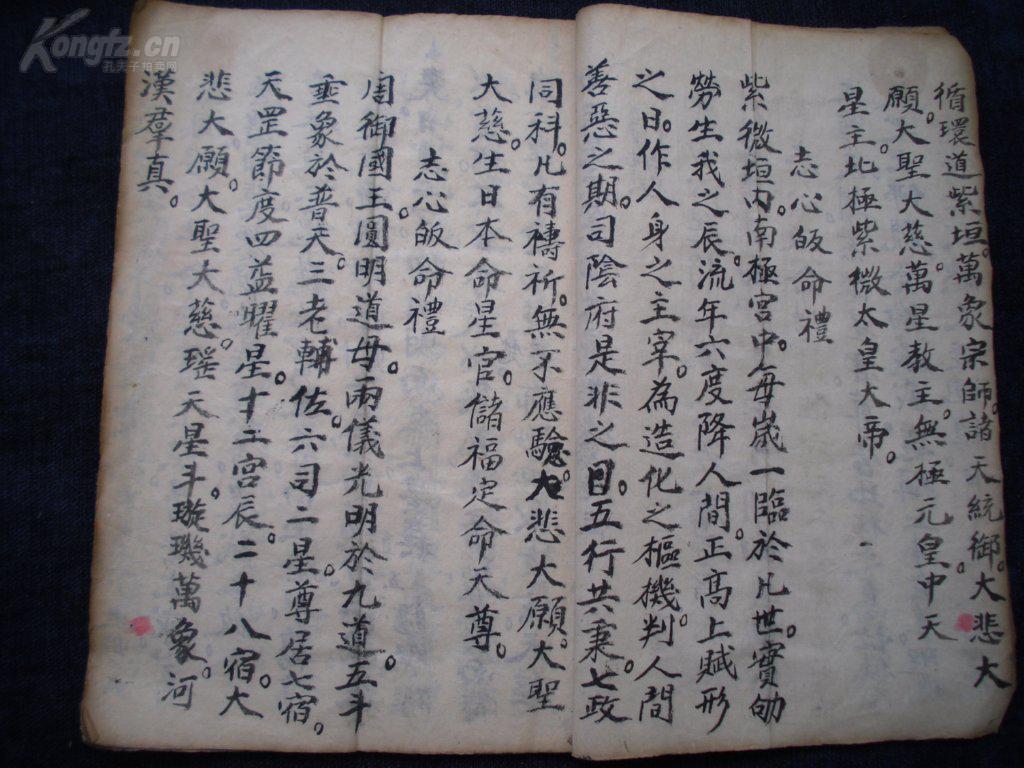 循環道紫垣。萬象宗師。諸天統御。大悲大
願。大聖大慈。萬星教主。無極元皇。中天
星主。北極紫微太皇大帝。
志心皈命禮
紫微垣内。南極宮中。每歲一臨於凡世。實劬
勞生我之辰。流年六度降人間。正高上賦形
之日。作人身之主宰。為造化之樞機。判人間
善惡之期。司陰府是非之目。五行共秉。七政
同科。凡有禱祈。無不應驗。大悲大願。大聖
大慈。生日本命星官。儲福定命天尊。
志心皈命禮
周御國王。圓明道母。兩儀光明於九道。五斗
垂象於普天。三老輔佐。六司二星。尊居七宿。
天罡節度四益曜星。十二宮辰。二十八宿。大
悲大願。大聖大慈。瑤天星斗。璇璣萬象。河
漢羣真。
Kongfz.cn
孔夫子拍卖网